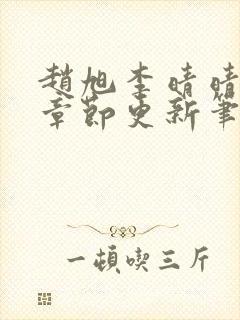 趙旭李晴晴
章節更新筆
一頓喫三斤